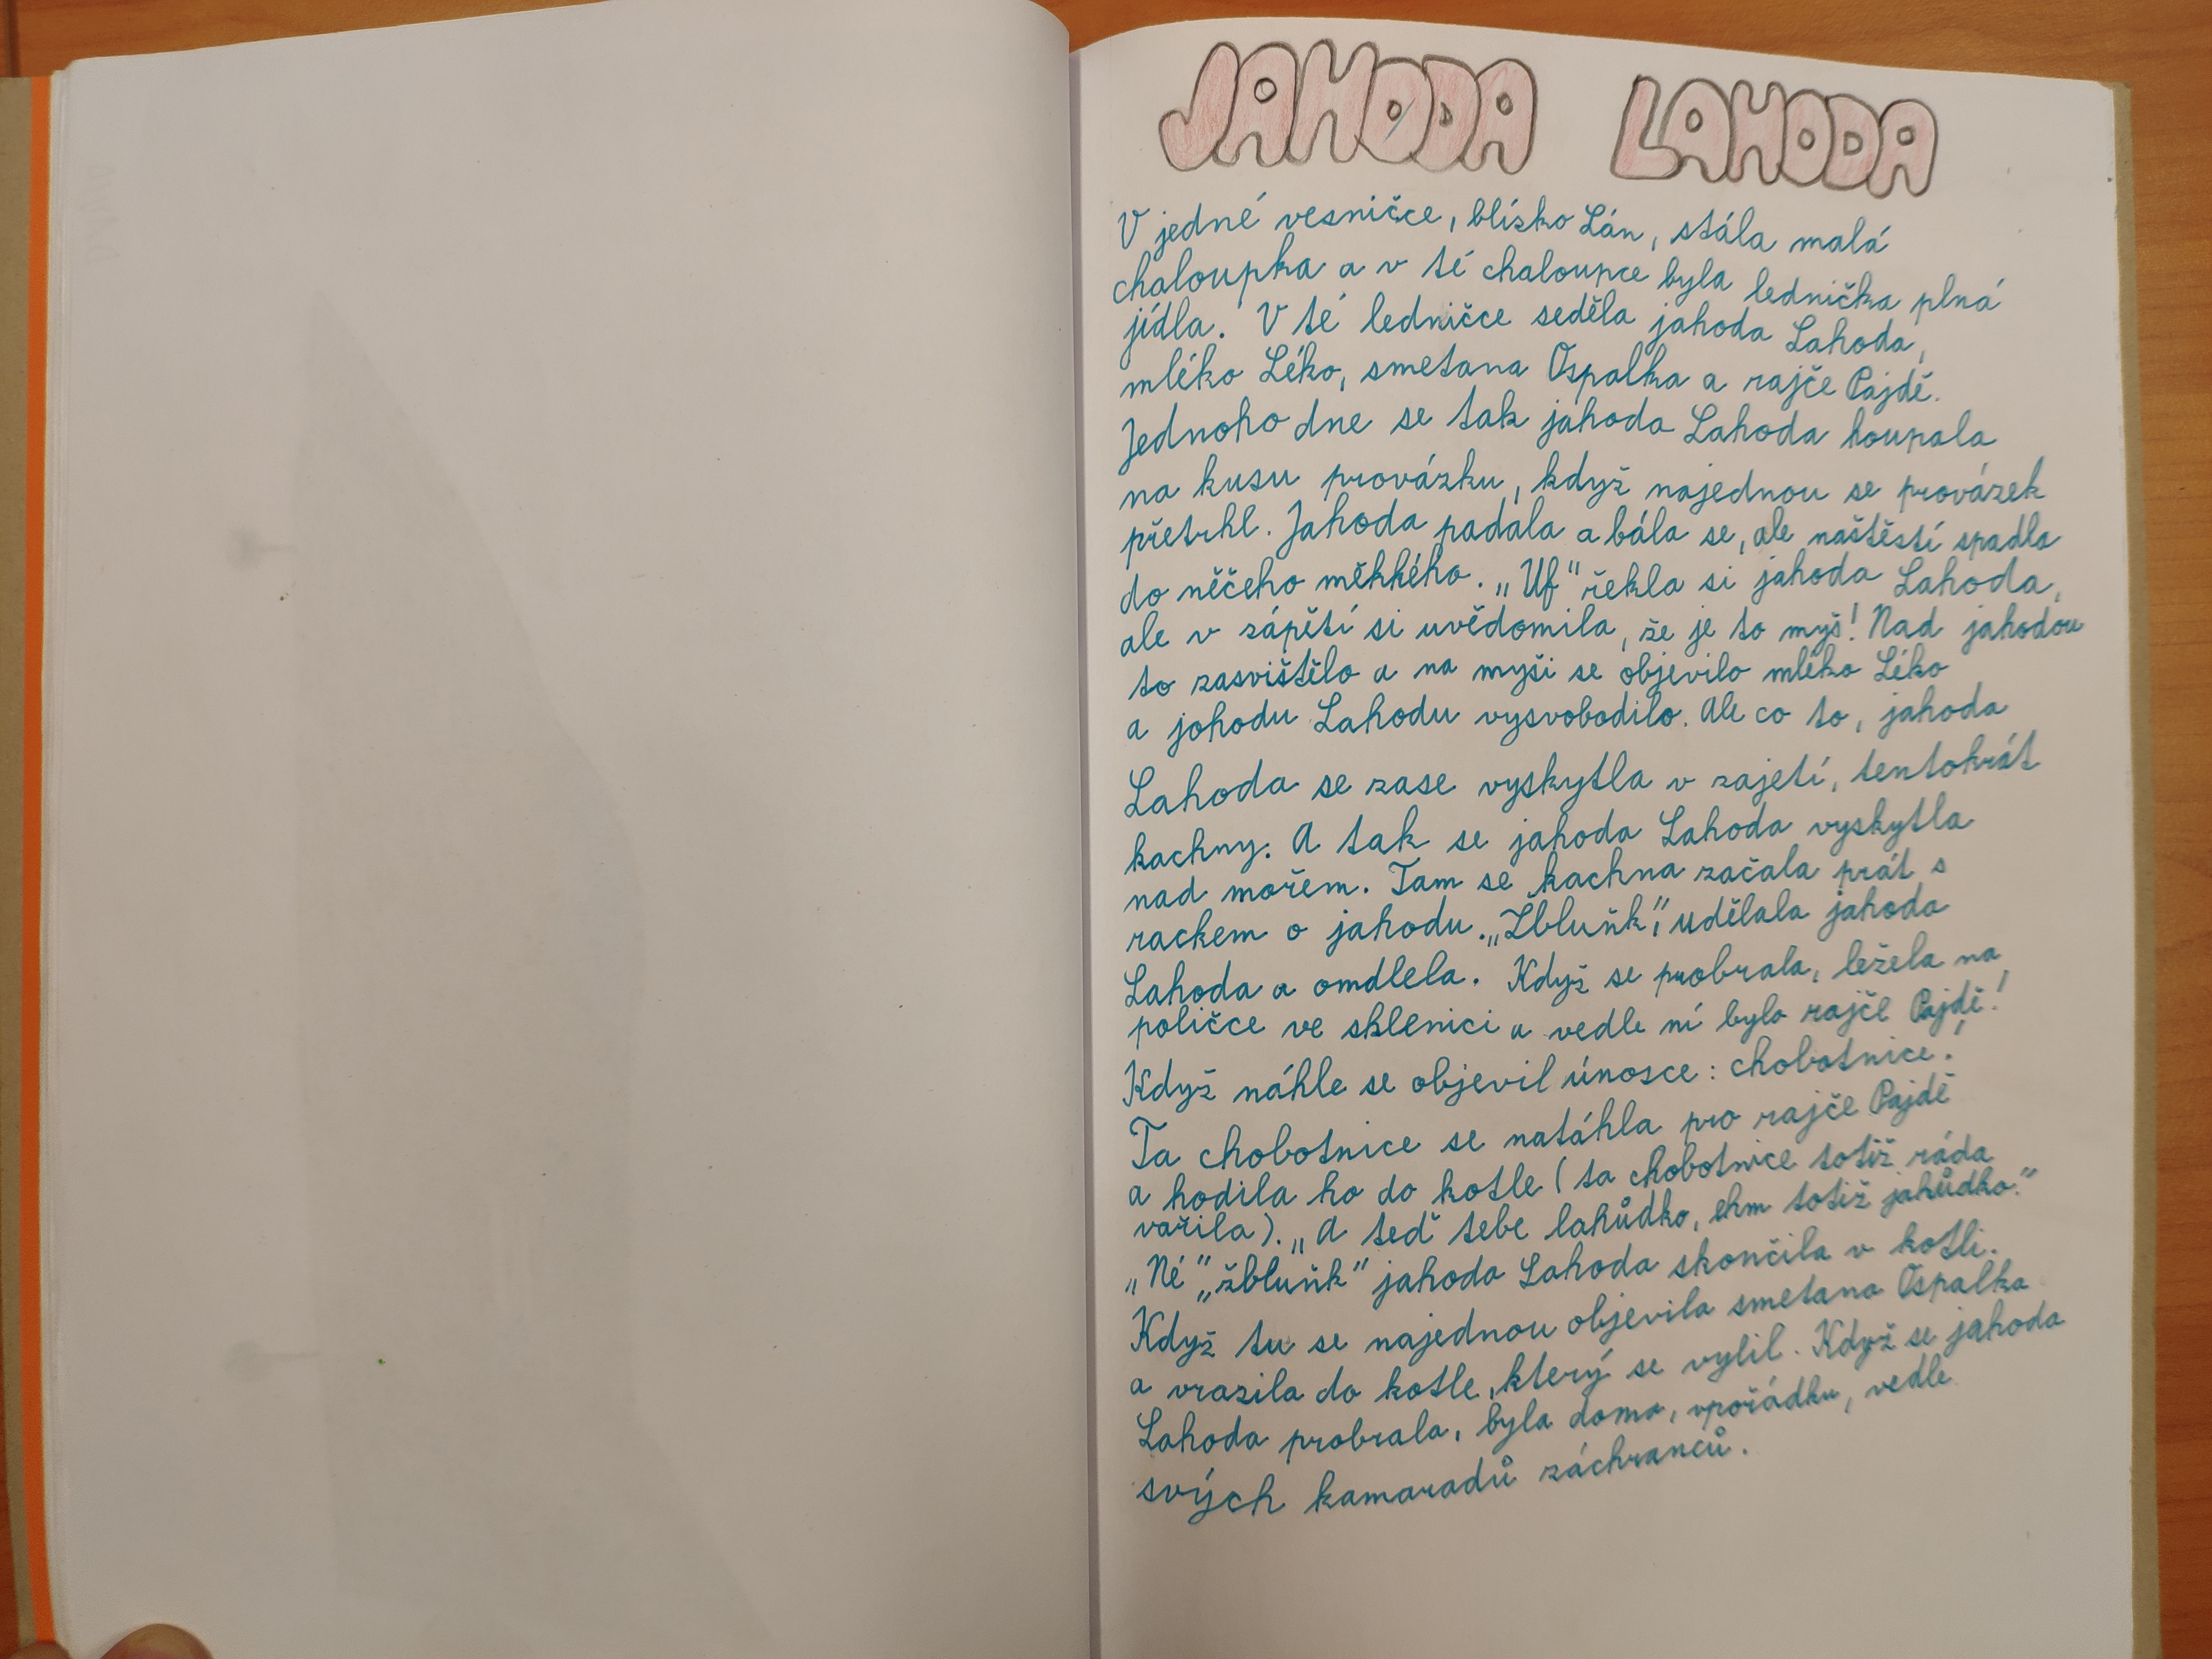 JAHODA LAHODA
V jedné vesničce, blízko Lán, stála malá
chaloupka a v té chaloupce byla lednička plná
jídla. V té ledničce seděla jahoda Lahoda,
mléko Léko, smetana Ospalka a rajče Pajdě.
Jednoho dne se tak jahoda Lahoda houpala
na kusu provázku, když najednou se provázek
přetrhl. Jahoda padala a bála se, ale naštěstí spadla
do něčeho měkkého. „Uf“ řekla si jahoda Lahoda,
ale v zápětí si uvědomila, že je to myš! Nad jahodou
to zasvištělo a na myši se objevilo mléko Léko
a johodu Lahodu vysvobodilo. Ale co to, jahoda
Lahoda se zase vyskytla v zajetí, tentokrát
kachny. A tak se jahoda Lahoda vyskytla
nad mořem. Tam se kachna začala prát s
rackem o jahodu. „Žbluňk“, udělala jahoda
Lahoda a omdlela. Když se probrala, ležela na
poličce ve sklenici a vedle ní bylo rajče Pajdě!
Když náhle se objevil únosce: chobotnice!
Ta chobotnice se natáhla pro rajče Pajdě
a hodila ho do kotle (ta chobotnice totiž ráda
vařila). „A teď tebe lahůdko, ehm totiž jahůdko.“
„Né“ „žbluňk“ jahoda Lahoda skončila v kotli.
Když tu se najednou objevila smetana Ospalka
a vrazila do kotle, který se vylil. Když se jahoda
Lahoda probrala, byla doma, vpořádku, vedle
svých kamaradů záchranců.